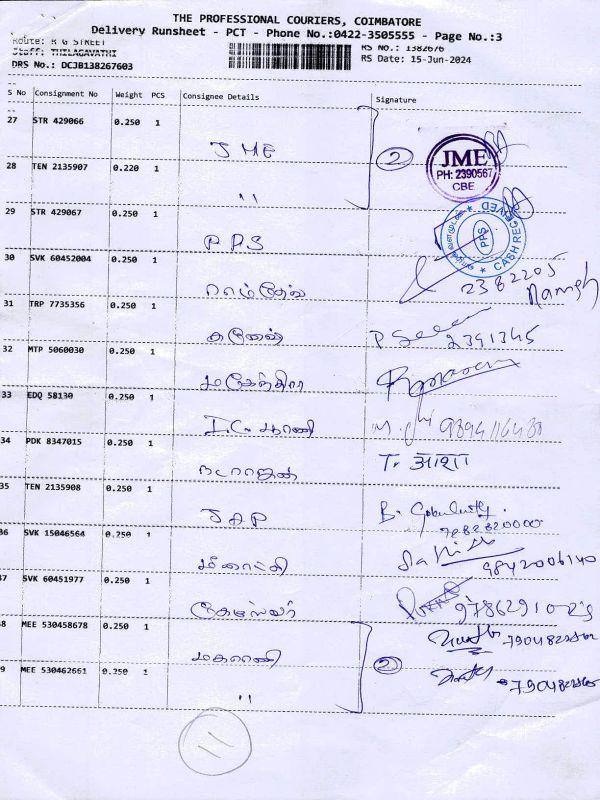 THE PROFESSIONAL COURIERS, COIMBATORE
Delivery Runsheet - PCT - Phone No.:0422-3505555 - Page No.:3
Route: R G STREET
RS No.: 1382676
Staff: THILAGAVATHI
RS Date: 15-Jun-2024
DRS No.: DCJB138267603
S No Consignment No Weight PCS Consignee Details Signature
27 STR 429066 0.250 1
JME
② JME
PH: 2390567
CBE
28 TEN 2135907 0.220 1
"
29 STR 429067 0.250 1
PPS
PPS
CASH RECEIVED
30 SVK 60452004 0.250 1
ராம்தேவ்
2382205
Ramesh
31 TRP 7735356 0.250 1
கணேஷ்
2391345
32 MTP 5060030 0.250 1
மகேந்திரா
33 EDQ 58130 0.250 1
I.C. ராணி
9894116480
34 PDK 8347015 0.250 1
நடராஜன்
T. आशा
35 TEN 2135908 0.250 1
JAP
B.
36 SVK 15046564 0.250 1
மீனாட்சி
9842006140
37 SVK 60451977 0.250 1
38 MEE 530458678 0.250 1
மகாராணி
②
39 MEE 530462661 0.250 1
"
11